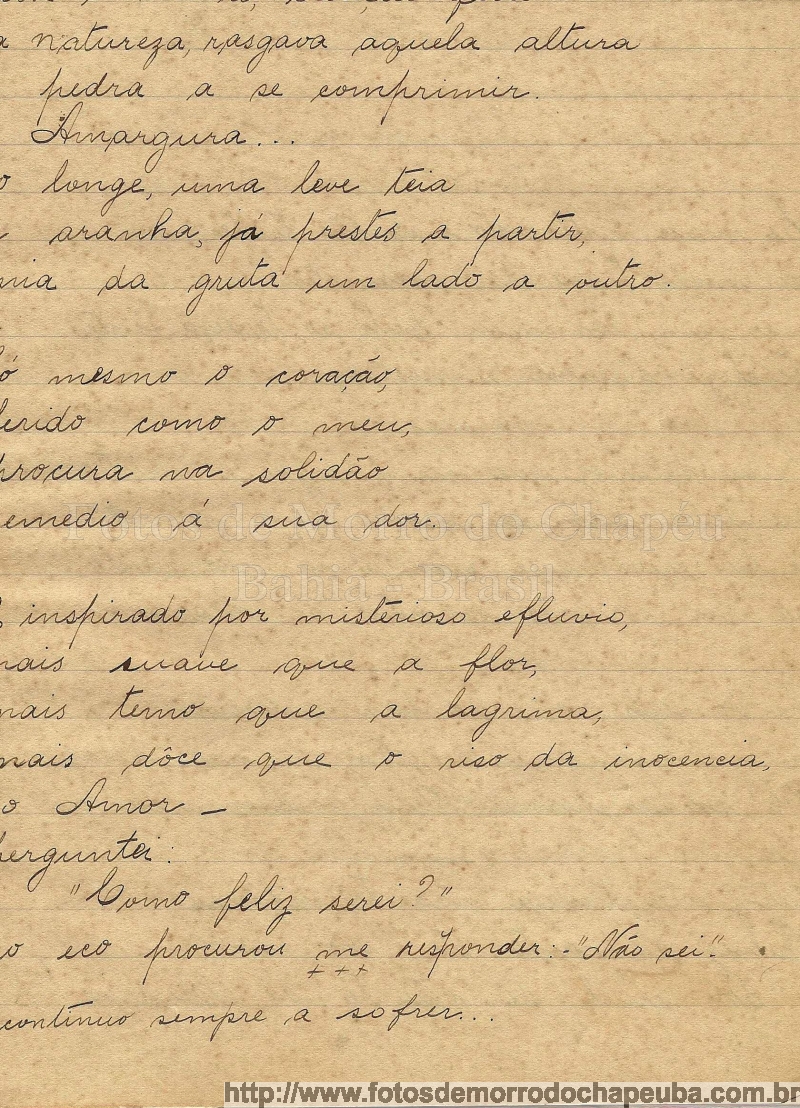 a natureza, rasgava aquela altura
pedra a se comprimir.
Amargura...
o longe, uma leve teia
aranha, já prestes a partir,
nia da gruta um lado a outro.
ó mesmo o coração,
ferido como o meu,
procura na solidão
emedio á sua dor.
Fotos de Morro do Chapeu
Bahia - Brasil
inspirado por misterioso efluvio,
mais suave que a flor,
mais terno que a lagrima,
mais dôce que o riso da inocencia,
o Amor -
perguntei:
"Como feliz serei?"
o eco procurou me responder: - "Não sei".
+ + +
continuo sempre a sofrer...
http://www.fotosdemorrodochapeuba.com.br